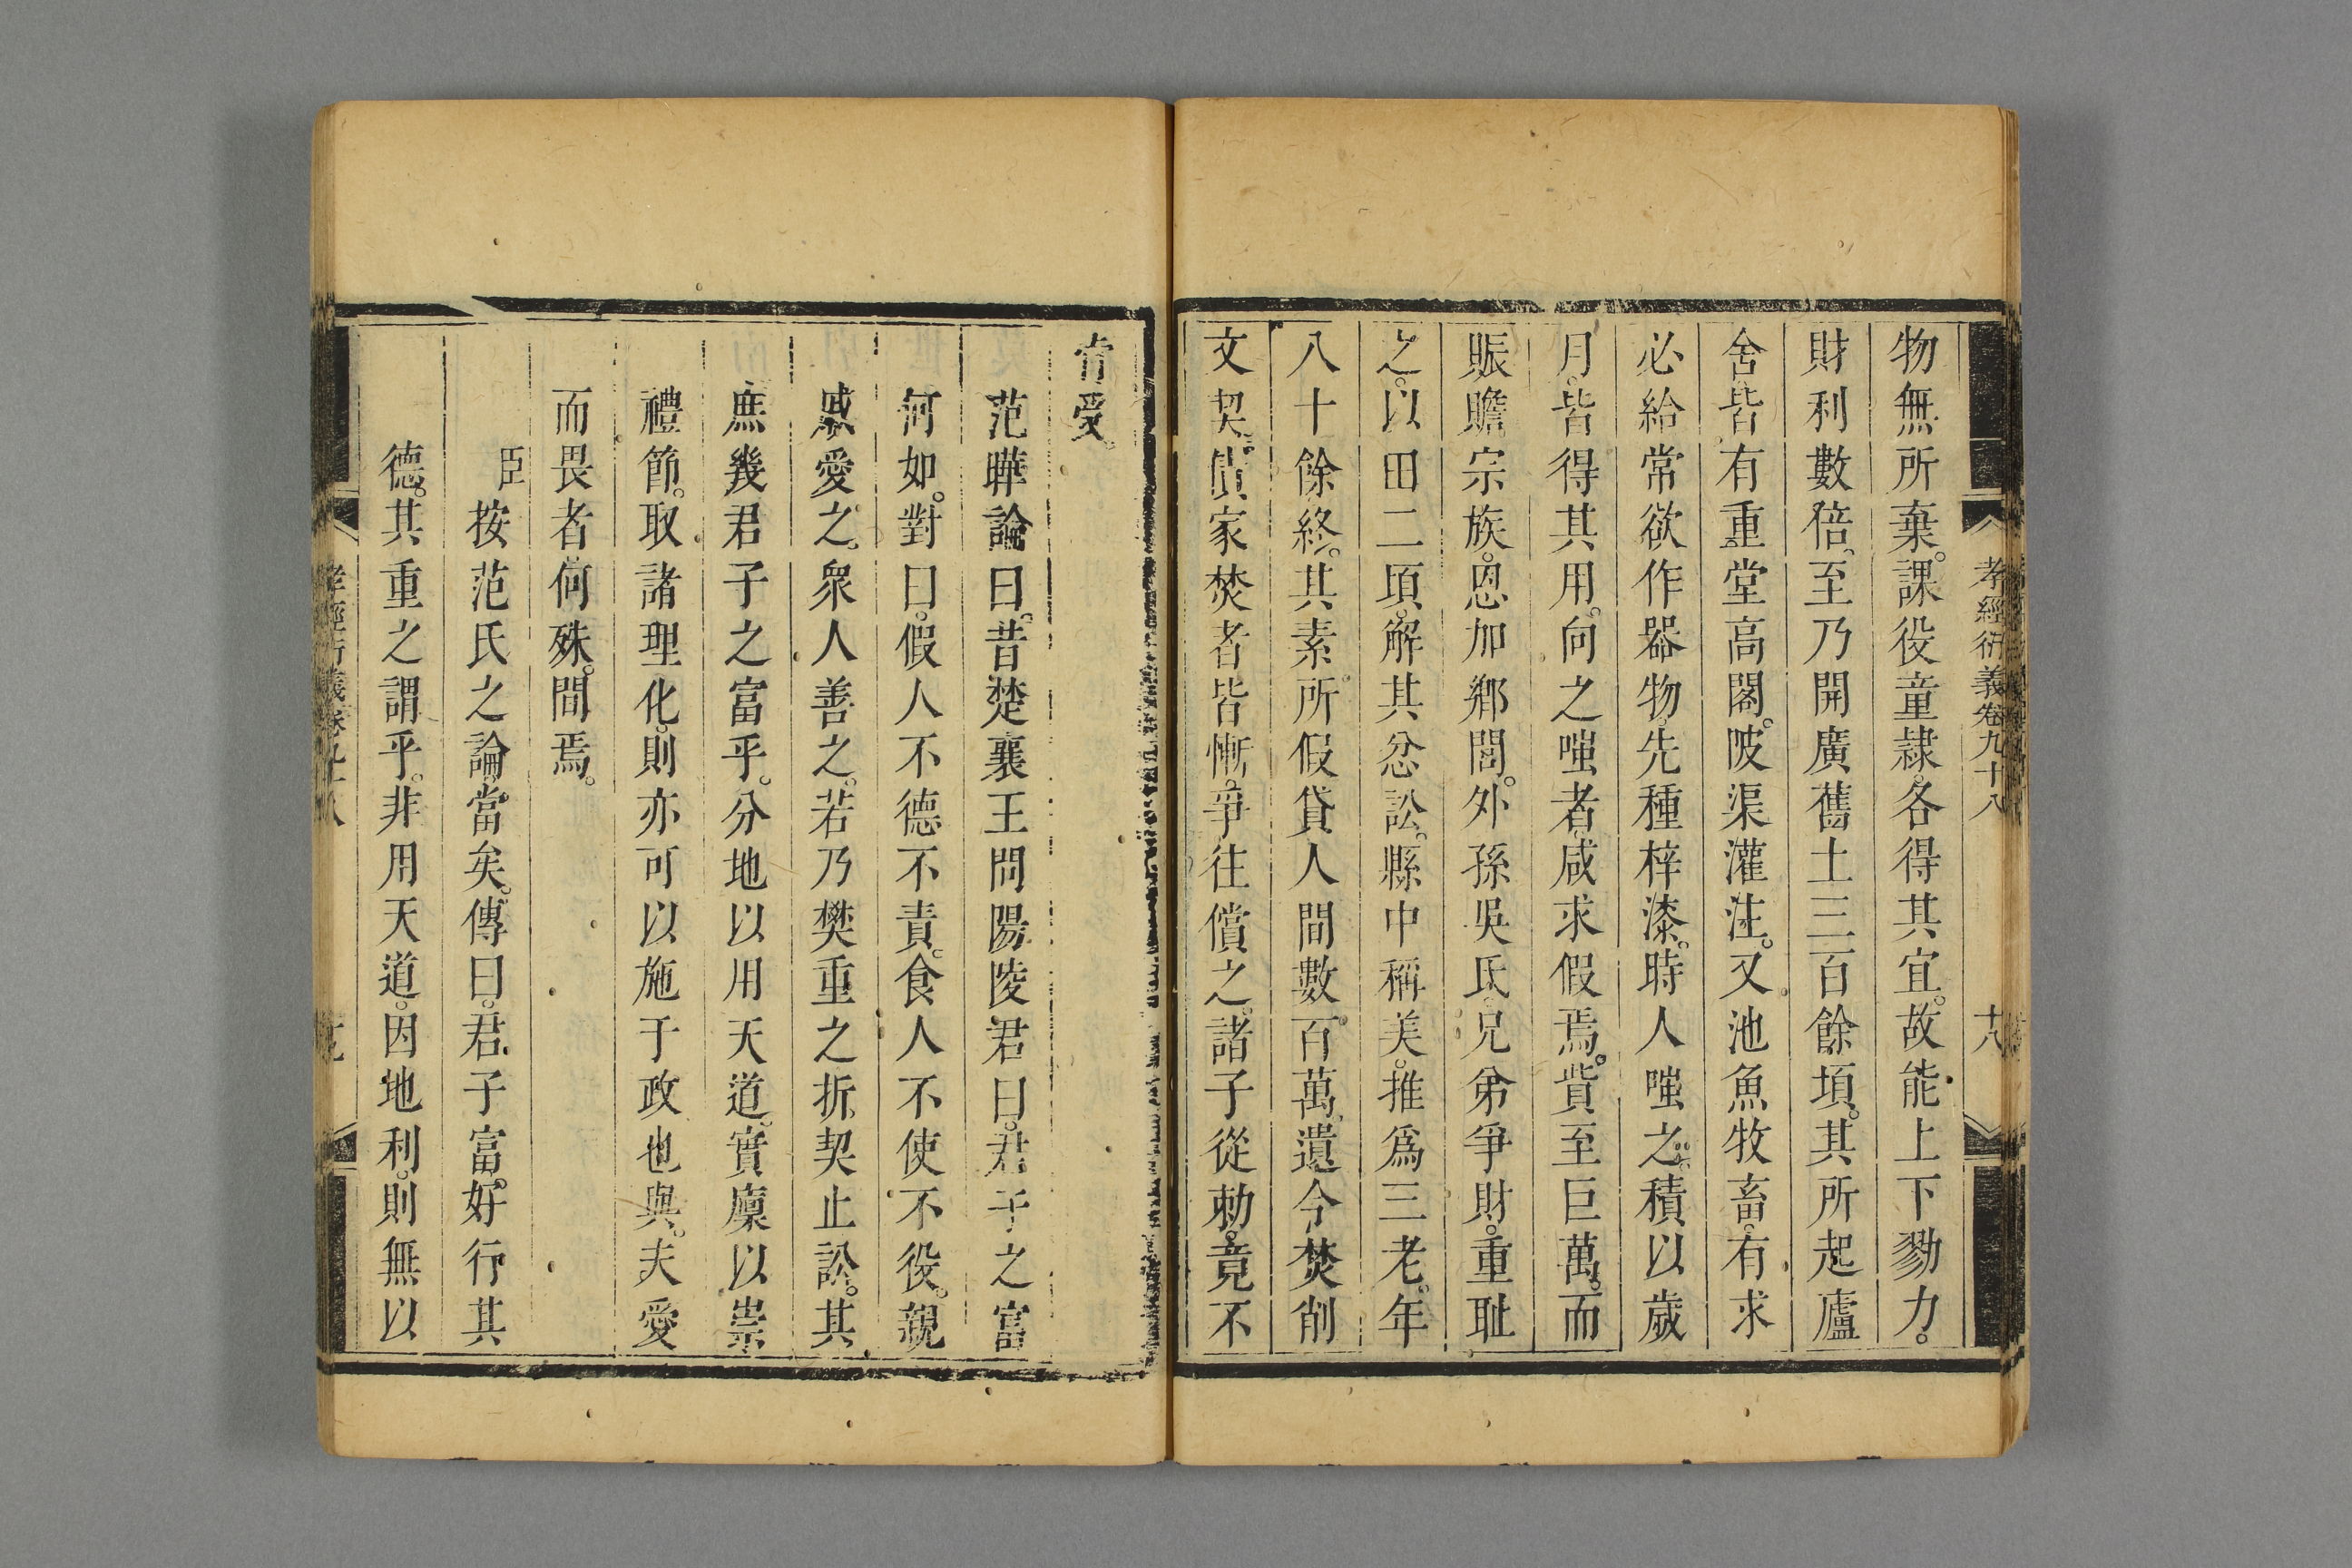 孝經衍義卷九十八 十八
物無所棄。課役童隷。各得其宜。故能上下勠力。
財利數倍。至乃開廣舊土三百餘頃。其所起廬
舍。皆有重堂高閣。陂渠灌注。又池魚牧畜。有求
必給。常欲作器物。先種梓漆。時人嗤之。積以歲
月。皆得其用。向之嗤者。咸求假焉。貲至巨萬。而
賑贍宗族。恩加鄉閭。外孫吳氏。兄弟爭財。重耻
之。以田二頃。解其忿訟。縣中稱美。推爲三老。年
八十餘終。其素所假貸人間數百萬。遺令焚削
文契。債家焚者皆慚。爭往償之。諸子從勅。竟不
肯受。
范曄論曰。昔楚襄王問陽陵君曰。君子之富
何如。對曰。假人不德不責。食人不使不役。親
戚愛之。衆人善之。若乃樊重之折契止訟。其
庶幾君子之富乎。分地以用天道。實廩以崇
禮節。取諸理化。則亦可以施于政也與。夫愛
而畏者何殊。間焉。
臣按范氏之論當矣。傳曰。君子富。好行其
德。其重之謂乎。非用天道。因地利。則無以
孝經衍義卷九十八